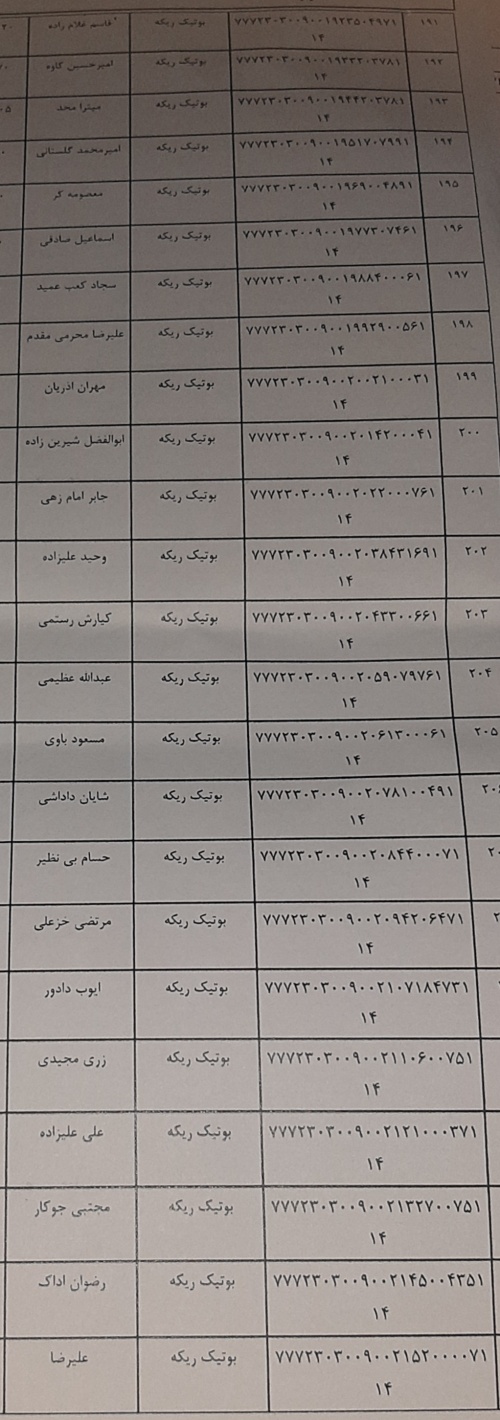 ۱۹۱ ۷۷۷۲۳۰۳۰۰۹۰۰۱۹۲۳۵۰۴۹۷۱ بوتیک ریکه قاسم غلام زاده
۱۴
۱۹۲ ۷۷۷۲۳۰۳۰۰۹۰۰۱۹۳۳۲۰۳۷۸۱ بوتیک ریکه امیرحسین کاوه
۱۴
۱۹۳ ۷۷۷۲۳۰۳۰۰۹۰۰۱۹۴۴۲۰۳۷۸۱ بوتیک ریکه میترا مجد
۱۴
۱۹۴ ۷۷۷۲۳۰۳۰۰۹۰۰۱۹۵۱۷۰۷۹۹۱ بوتیک ریکه امیرمحمد گلستانی
۱۴
۱۹۵ ۷۷۷۲۳۰۳۰۰۹۰۰۱۹۶۹۰۰۴۸۹۱ بوتیک ریکه معصومه کر
۱۴
۱۹۶ ۷۷۷۲۳۰۳۰۰۹۰۰۱۹۷۷۳۰۷۴۶۱ بوتیک ریکه اسماعیل صادقی
۱۴
۱۹۷ ۷۷۷۲۳۰۳۰۰۹۰۰۱۹۸۸۴۰۰۰۶۱ بوتیک ریکه سجاد کعب عمید
۱۴
۱۹۸ ۷۷۷۲۳۰۳۰۰۹۰۰۱۹۹۲۹۰۰۵۶۱ بوتیک ریکه علیرضا محرمی مقدم
۱۴
۱۹۹ ۷۷۷۲۳۰۳۰۰۹۰۰۲۰۰۲۱۰۰۰۳۱ بوتیک ریکه مهران اذریان
۱۴
۲۰۰ ۷۷۷۲۳۰۳۰۰۹۰۰۲۰۱۴۲۰۰۰۴۱ بوتیک ریکه ابوالفضل شیرین زاده
۱۴
۲۰۱ ۷۷۷۲۳۰۳۰۰۹۰۰۲۰۲۲۰۰۰۷۶۱ بوتیک ریکه جابر امام زهی
۱۴
۲۰۲ ۷۷۷۲۳۰۳۰۰۹۰۰۲۰۳۸۴۳۱۶۹۱ بوتیک ریکه وحید علیزاده
۱۴
۲۰۳ ۷۷۷۲۳۰۳۰۰۹۰۰۲۰۴۳۳۰۰۶۶۱ بوتیک ریکه کیارش رستمی
۱۴
۲۰۴ ۷۷۷۲۳۰۳۰۰۹۰۰۲۰۵۹۰۷۹۷۶۱ بوتیک ریکه عبدالله عظیمی
۱۴
۲۰۵ ۷۷۷۲۳۰۳۰۰۹۰۰۲۰۶۱۳۰۰۰۶۱ بوتیک ریکه مسعود باوی
۱۴
۷۷۷۲۳۰۳۰۰۹۰۰۲۰۷۸۱۰۰۴۹۱ بوتیک ریکه شایان داداشی
۱۴
۷۷۷۲۳۰۳۰۰۹۰۰۲۰۸۴۴۰۰۰۷۱ بوتیک ریکه حسام بی نظیر
۱۴
۷۷۷۲۳۰۳۰۰۹۰۰۲۰۹۴۲۰۶۴۷۱ بوتیک ریکه مرتضی خزعلی
۱۴
۷۷۷۲۳۰۳۰۰۹۰۰۲۱۰۷۱۸۴۷۳۱ بوتیک ریکه ایوب دادور
۱۴
۷۷۷۲۳۰۳۰۰۹۰۰۲۱۱۰۶۰۰۷۵۱ بوتیک ریکه زری مجیدی
۱۴
۷۷۷۲۳۰۳۰۰۹۰۰۲۱۲۱۰۰۰۳۷۱ بوتیک ریکه علی علیزاده
۱۴
۷۷۷۲۳۰۳۰۰۹۰۰۲۱۳۲۷۰۰۷۵۱ بوتیک ریکه مجتبی جوکار
۱۴
۷۷۷۲۳۰۳۰۰۹۰۰۲۱۴۵۰۰۴۳۵۱ بوتیک ریکه رضوان اداک
۱۴
۷۷۷۲۳۰۳۰۰۹۰۰۲۱۵۲۰۰۰۰۷۱ بوتیک ریکه علیرضا
۱۴